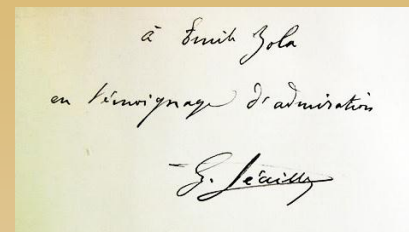 à Emile Zola
en témoignage d'admiration
G. Séailles